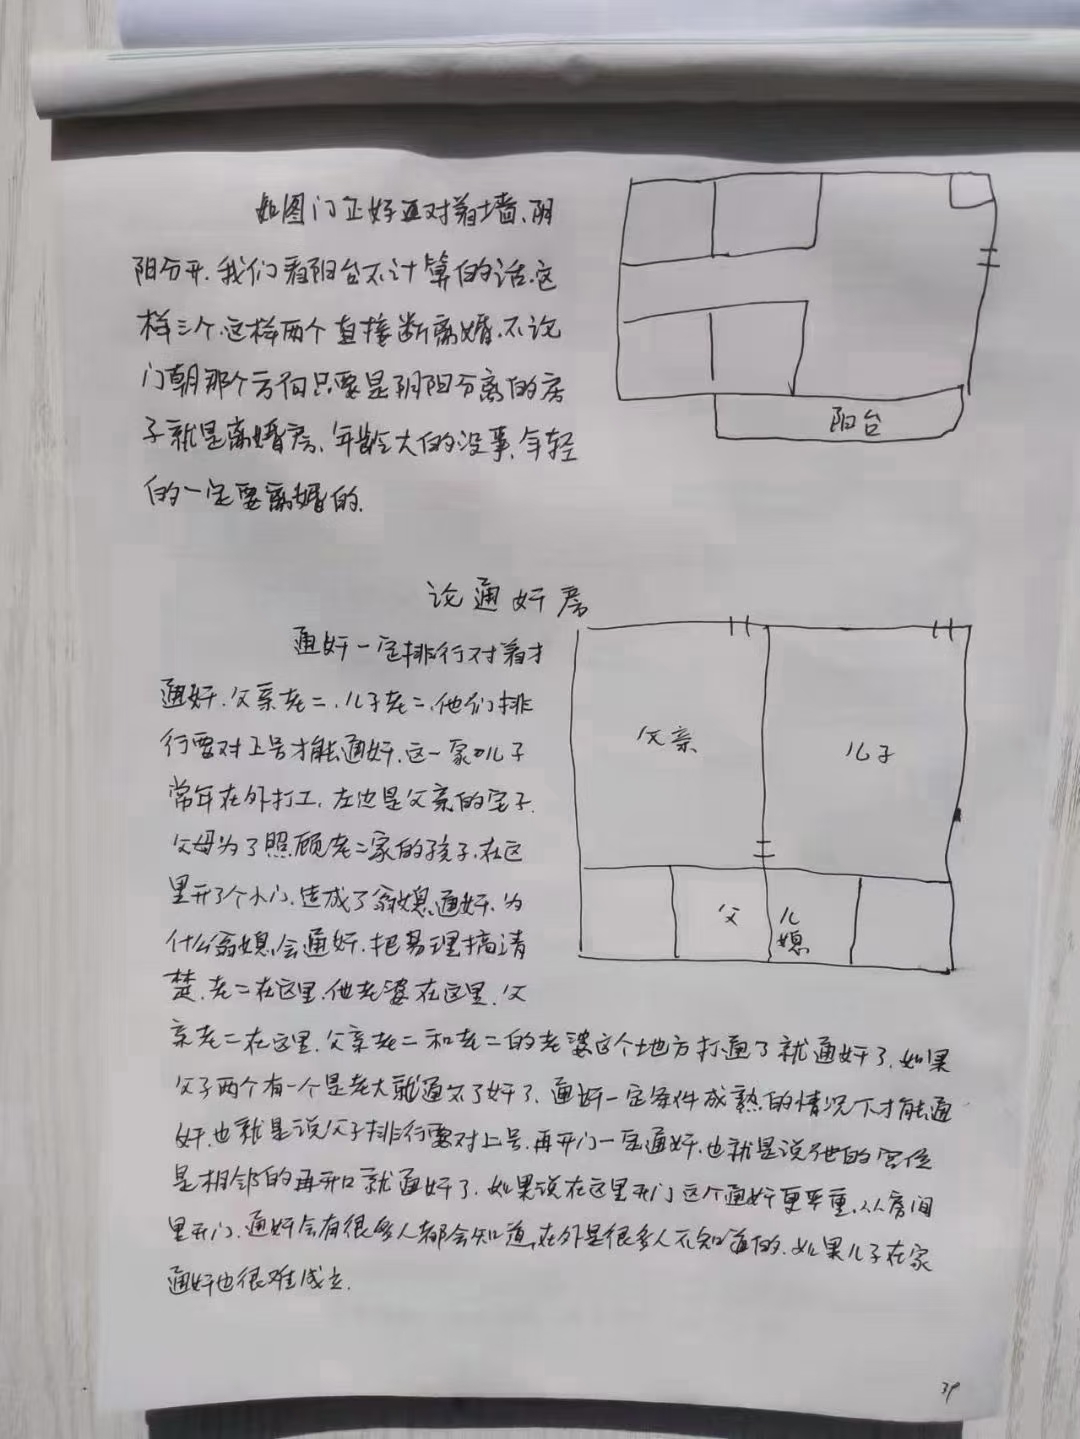 如图门正好面对着墙、阴
阳分开.我们看阳台不计算的话.这
样三个.这样两个直接断离婚.不论
门朝那个方向只要是阴阳分离的房
子就是离婚房、年龄大的没事.年轻
的一定要离婚的.
阳台
论通奸房
通奸一定排行对着才
通奸.父亲老二.儿子老二.他们排
行要对上号才能通奸.这一家儿子
常年在外打工.左边是父亲的宅子.
父母为了照顾老二家的孩子.在这
里开了个小门.造成了翁媳通奸.为
什么翁媳会通奸.把易理搞清
楚.老二在这里.他老婆在这里.父
亲老二在这里.父亲老二和老二的老婆这个地方打通了就通奸了.如果
父子两个有一个是老大就通不了奸了.通奸一定条件成熟的情况下才能通
奸.也就是说父子排行要对上号.再开门一定通奸.也就是说他的宫位
是相邻的再开口就通奸了.如果说在这里开门这个通奸更严重.从房间
里开门.通奸会有很多人都会知道.在外是很多人不知道的.如果儿子在家
通奸也很难成立.
父亲
儿子
父
儿媳
39